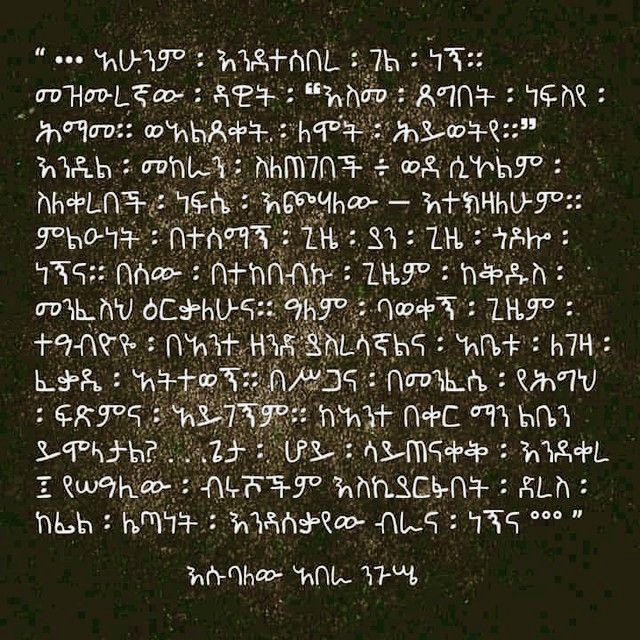 “ ••• አሁንም ፡ እንደተሰበረ ፡ ገል ፡ ነኝ።
መዝሙረኛው ፡ ዳዊት ፡ “እስመ ፡ ጸግበት ፡ ነፍስየ ፡
ሕማመ። ወአልጸቀት ፡ ለሞት ፡ ሕይወትየ።”
እንዲል ፡ መከራን ፡ ስለጠገበች ÷ ወደ ሲኦልም ፡
ስለቀረበች ፡ ነፍሴ ፡ እጮሃለው — እተክዛለሁም።
ምልዑነት ፡ በተሰማኝ ፡ ጊዜ ፡ ያን ፡ ጊዜ ፡ ጎዶሎ ፡
ነኝና። በሰው ፡ በተከበብኩ ፡ ጊዜም ፡ ከቅዱስ ፡
መንፈስህ ዕርቃለሁና። ዓለም ፡ ባወቀኝ ፡ ጊዜም ፡
ተዓብዮዬ ፡ በአንተ ዘንድ ያስረሳኛልና ፡ አቤቱ ፡ ለገዛ ፡
ፈቃዴ ፡ አትተወኝ። በሥጋና ፡ በመንፈሴ ፡ የሕግህ
፡ ፍጽምና ፡ አይገኝም። ከአንተ በቀር ማን ልቤን
ይሞላታል? . . .ጌታ ፡ ሆይ ፡ ሳይጠናቀቅ ፡ እንደቀረ
፤ የሠዓሊው ፡ ብሩሾችም እስኪያርፉበት ፡ ድረስ ፡
ከፊል ፡ ሌጣነት ፡ እንዳሰቃየው ብራና ፡ ነኝና °°° ”
እሱባለው አበራ ንጉሤ